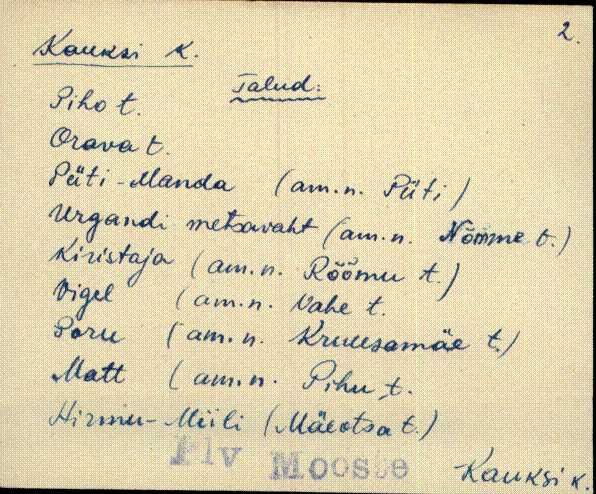 2.
Kauksi k.
Talud:
Piho t.
Orava t.
Püti-Manda (am.n. Püti)
Urgandi metsavaht (am.n. Nõmme t.)
Kiristaja (am.n. Rõõmu t.)
Vigel (am.n. Vahe t.
Soru (am.n. Kruusamäe t.)
Matt (am.n. Pihu t.
Hirmu-Miili (Mäeotsa t.)
Plv Mooste
Kauksi k.